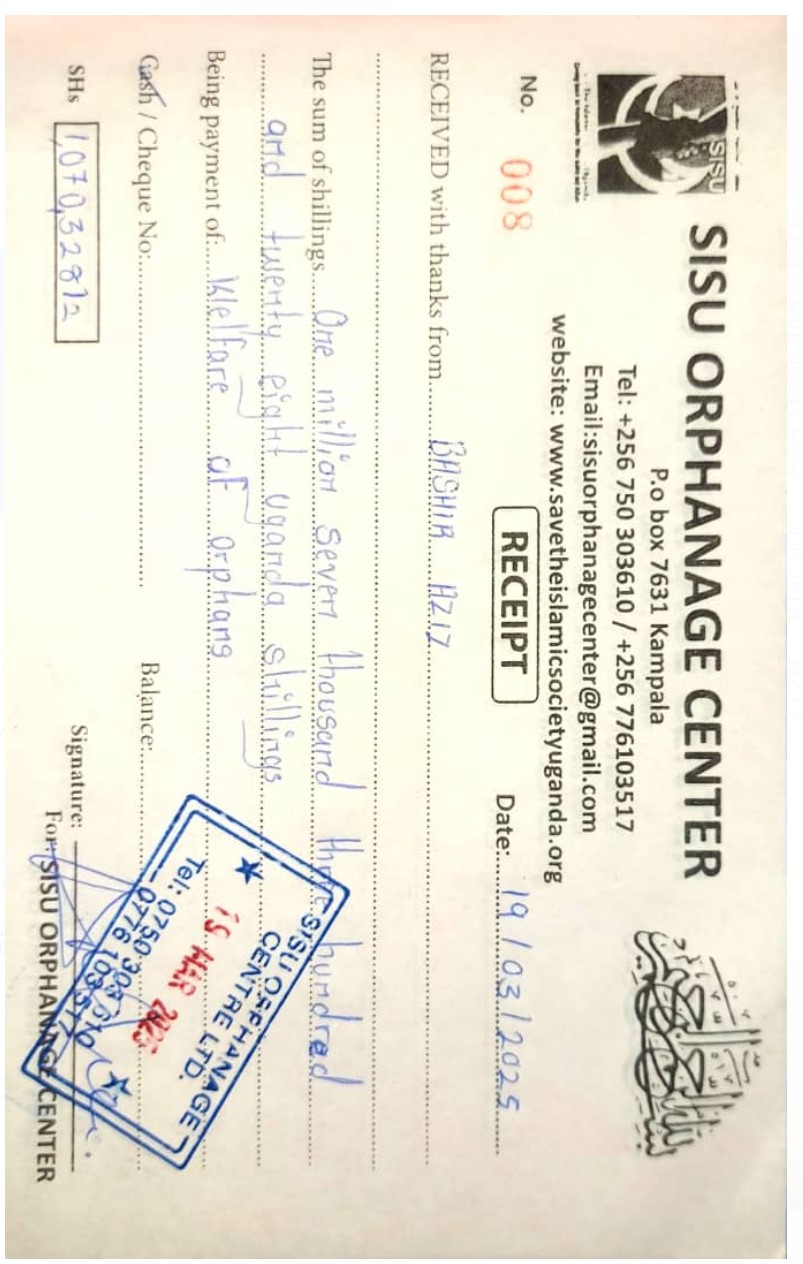 SISU ORPHANAGE CENTER
P.o box 7631 Kampala
Tel: +256 750 303610 / +256 776103517
Email:sisuorphanagecenter@gmail.com
website: www.savetheislamicsocietyuganda.org
SISU
No. 008
RECEIPT
Date: 19/03/2025
RECEIVED with thanks from BASHIR AZIZ
The sum of shillings One million seven thousand three hundred
and twenty eight uganda shillings
Being payment of: Welfare of orphans
Cash / Cheque No: Balance:
SHs 1,070,328/2
Signature:
For: SISU ORPHANAGE CENTER
SISU ORPHANAGE
CENTRE LTD.
MAR 2025
Tel: 0750 303610
0776 103517